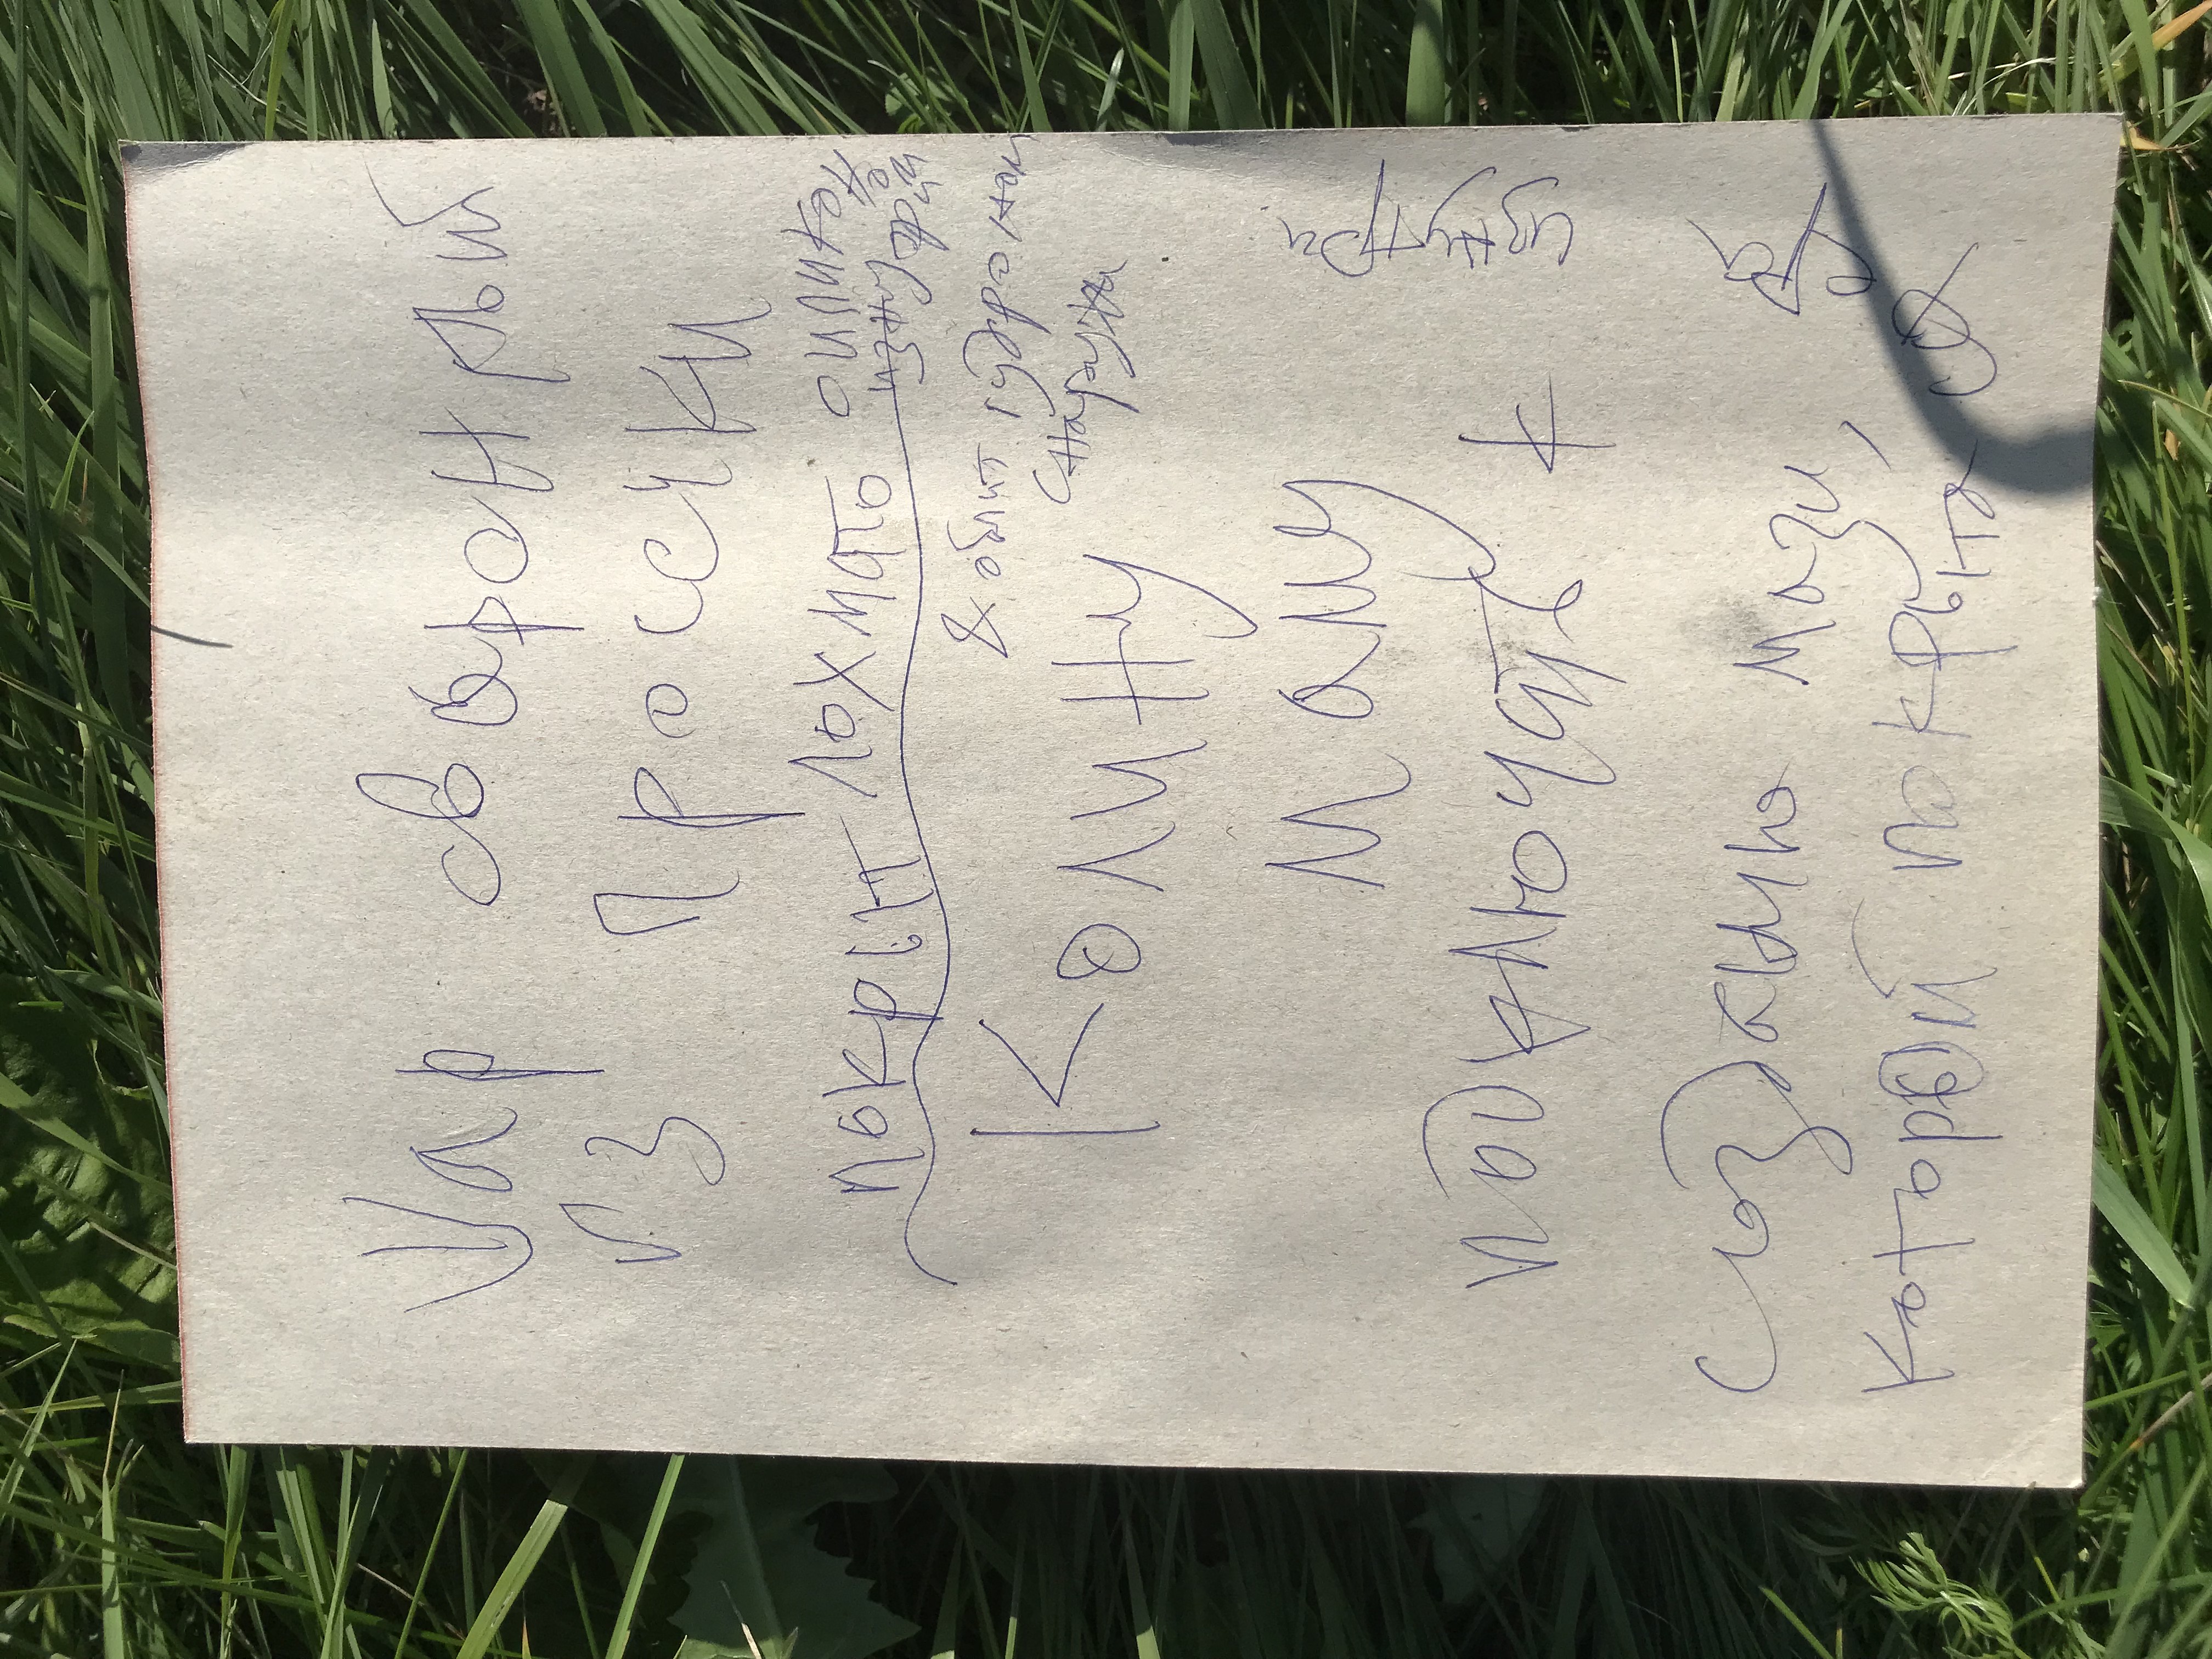 Шар сваренный
из просечки
покрыт лохмато силиконом
изнутри
& облит гудроном
снаружи
Колину
маму
подключать к
созданию мази,
которой покрыта сфера
изнутри.